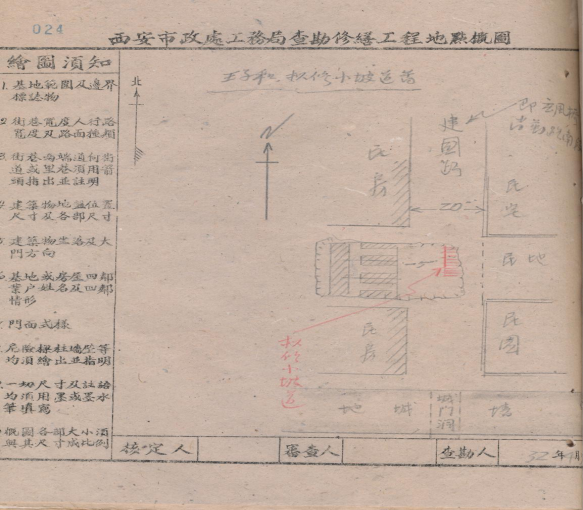 024
西安市政處工務局查勘修繕工程地點概圖
繪圖須知
1. 基地範圍及邊界
標誌物
2 街巷寬度人行路
寬度及路面種類
3. 街巷兩端通何街
道或里巷須用箭
頭指出並註明
4 建築物地盤位置
尺寸及各部尺寸
5 建築物坐落及大
門方向
6. 基地或房屋四鄰
業户姓名及四鄰
情形
7 門面式樣
8. 危險採柱墻壁等
均須繪出並指明
9. 一切尺寸及註語
均須用墨或墨水
筆填寫
概圖各部大小須
與其尺寸成比例
北
王子和 拟修小坡道

N
建國路
民房
民宅
20'
民地
民房
民園
拟修小坡道
地 城 城門洞 墙
核定人
審查人
查勘人
32年 月